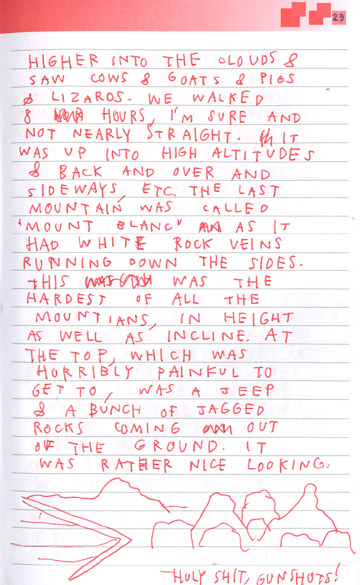 29
HIGHER INTO THE CLOUDS &
SAW COWS & GOATS & PIGS
& LIZARDS. WE WALKED
8 HOURS, I'M SURE AND
NOT NEARLY STRAIGHT. IT
WAS UP INTO HIGH ALTITUDES
& BACK AND OVER AND
SIDEWAYS, ETC. THE LAST
MOUNTAIN, WAS CALLED
"MOUNT BLANC" AS IT
HAD WHITE ROCK VEINS
RUNNING DOWN THE SIDES.
THIS WAS THE
HARDEST OF ALL THE
MOUNTIANS, IN HEIGHT
AS WELL AS INCLINE. AT
THE TOP, WHICH WAS
HORRIBLY PAINFUL TO
GET TO, WAS A JEEP
& A BUNCH OF JAGGED
ROCKS COMING OUT
OF THE GROUND. IT
WAS RATHER NICE LOOKING:
HOLY SHIT, GUNSHOTS!